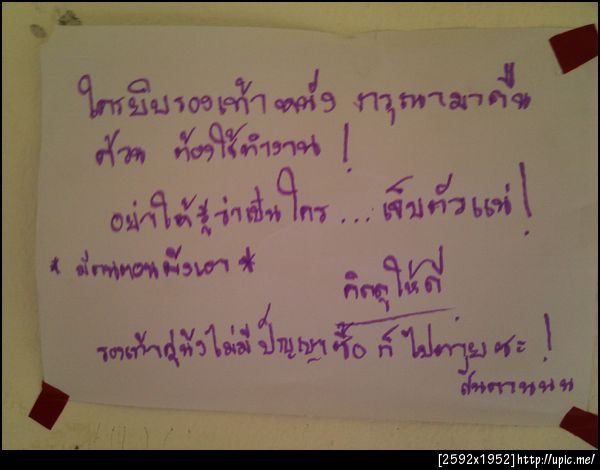 ใครยิบรองเท้าหนัง กรุณามาคืน
ด้วน ต้องใช้ทำงาน !
อย่าให้รู้ว่าเป็นใคร... เจ็บตัวแน่ !
* *
คิดดูให้ดี
รองเท้าคู่นึงไม่มีปัญญาซื้อ ก็ไปตายซะ !
สันดานนน
[2592x1952]http://upic.me/